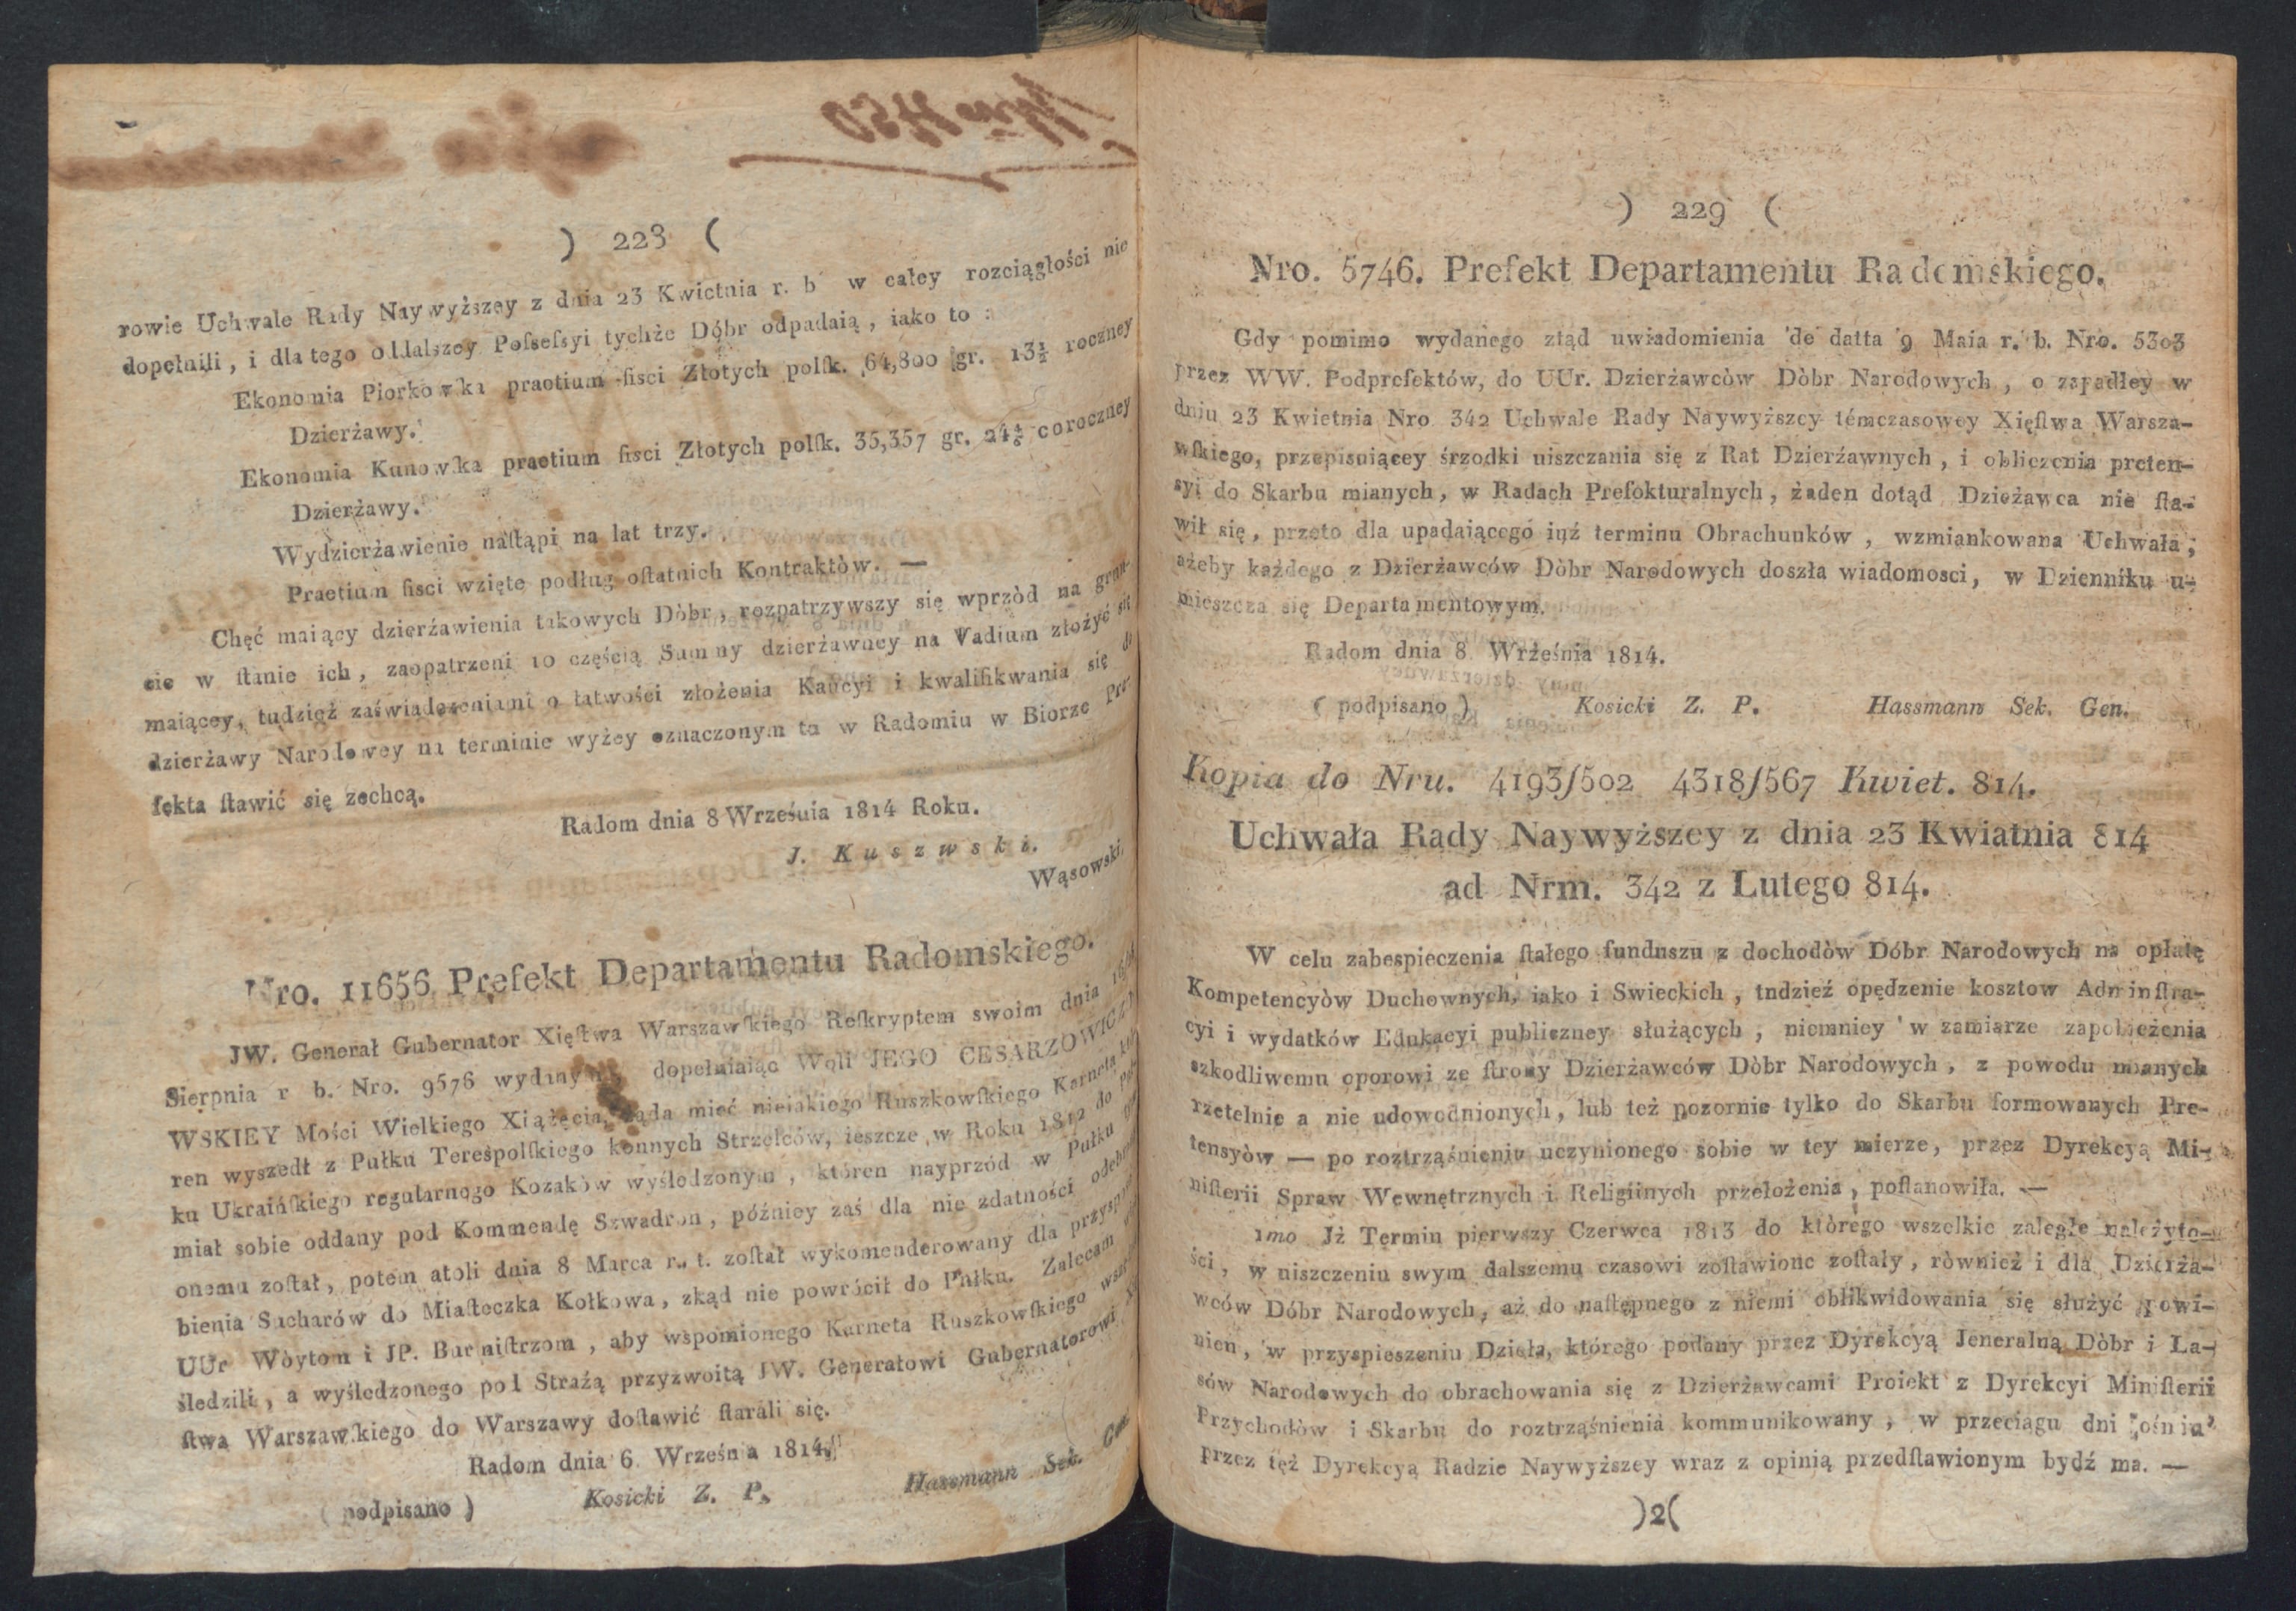 ) 228 (
rowie Uchwale Rady Naywyższey z dnia 23 Kwietnia r. b w całey rozciągłości nie
dopełnili, i dla tego oddalszey Poſseſsyi tychże Dóbr odpadaią, iako to :
Ekonomia Piorkowſka praetium fisci Złotych polſk. 64,800 gr. 13½ roczney
Dzierżawy.
Ekonomia Kunowſka praetium fisci Złotych polſk. 35,357 gr. coroczney
Dzierżawy.
Wydzierżawienie naſtąpi na lat trzy.
Praetium fisci wzięte podług oſtatnich Kontraktòw. —
Chęć maiący dzierźawienia takowych Dòbr, rozpatrzywszy się wprzòd na grun-
cie w ſtanie ich, zaopatrzeni 10 częścią Summy dzierżawney na Vadium złożyć się
maiącey, tudzież zaświadczeniami o łatwości złożenia Kaucyi i kwalifikwania się do
dzierżawy Narodowey na terminie wyżey oznaczonym tu w Radomiu w Biorze Pre-
fekta ſtawić się zechcą.
Radom dnia 8 Września 1814 Roku.
J. Kuszwski.
Wąsowski.
Nro. 11656 Prefekt Departamentu Radomskiego.
JW. Generał Gubernator Xięſtwa Warszawſkiego Reſkryptem swoim dnia
Sierpnia r b. Nro. 9576 wydanym, dopełniaiąc Woli JEGO CESARZOWICZ-
WSKIEY Mości Wielkiego Xiążęcia, żąda mieć nieiakiego Ruszkowſkiego Karneta któ-
ren wyszedł z Pułku Tereśpolſkiego konnych Strzelców, ieszcze w Roku 1812 do Puł-
ku Ukraińſkiego regularnego Kozaków wyśledzonym, któren nayprzód w Pułku
miał sobie oddany pod Kommendę Szwadron, późniey zaś dla nie zdatności odebrany
onemu zoſtał, potem atoli dnia 8 Marca r. t. zoſtał wykomenderowany dla przyspo-
bienia Sucharów do Miaſteczka Kołkowa, zkąd nie powrócił do Pułku. Zalecam
UUr Wòytom i JP. Burmiſtrzom, aby wspomionego Karneta Ruszkowſkiego
śledzili, a wyśledzonego pod Strażą przyzwoitą JW. Generałowi Gubernatorowi Xię-
ſtwa Warszawſkiego do Warszawy doſtawić ſtarali się.
Radom dnia 6 Września 1814.
( podpisano ) Kosicki Z. P. Hassmann Sek. Gen.
) 229 (
Nro. 5746. Prefekt Departamentu Radomskiego.
Gdy pomimo wydanego ztąd uwiadomienia de datta 9 Maia r. b. Nro. 5303
przez WW. Podprefektów, do UUr. Dzierżawcòw Dòbr Narodowych, o zapadłey w
dniu 23 Kwietnia Nro 342 Uchwale Rady Naywyższey témczasowey Xięſtwa Warsza-
wſkiego, przepisuiącey śrzodki uiszczania się z Rat Dzierźawnych, i obliczenia preten-
syi do Skarbu mianych, w Radach Prefekturalnych, żaden dotąd Dzieżawca nie ſta-
wił się, przeto dla upadaiącego iuż terminu Obrachunków, wzmiankowana Uchwała,
ażeby każdego z Dzierżawców Dòbr Narodowych doszła wiadomosci, w Dzienniku u-
mieszcza się Departamentowym.
Radom dnia 8 Wrżeśnia 1814.
( podpisano ) Kosicki Z. P. Hassmann Sek. Gen.
Kopia do Nru. 4193/502 4318/567 Kwiet. 814.
Uchwała Rady Naywyższey z dnia 23 Kwiatnia 814
ad Nrm. 342 z Lutego 814.
W celu zabespieczenia ſtałego funduszu z dochodòw Dóbr Narodowych na opłatę
Kompetencyòw Duchownych, iako i Swieckich, tudzież opędzenie kosztow Adminiſtra-
cyi i wydatków Edukacyi publiczney służących, niemniey w zamiarze zapobieżenia
szkodliwemu oporowi ze ſtrony Dzierżawców Dòbr Narodowych, z powodu mianych
rzetelnie a nie udowodnionych, lub też pozornie tylko do Skarbu formowanych Pre-
tensyòw — po roztrząśnieniu uczynionego sobie w tey mierze, przez Dyrekcyą Mi-
niſterii Spraw Wewnętrznych i Religiinych przełożenia, poſtanowiła. —
1mo Jż Termin pierwszy Czerwca 1813 do którego wszelkie zaległe należyto-
ści, w uiszczeniu swym dalszemu czasowi zoſtawione zoſtały, ròwnież i dla Dzierża-
wców Dóbr Narodowych, aż do naſtępnego z niemi oblikwidowania się służyć powi-
nien, w przyspieszeniu Dzieła, którego podany przez Dyrekcyą Jeneralną Dòbr i La-
sów Narodowych do obrachowania się z Dzierżawcami Proiekt z Dyrekcyi Miniſterii
Przychodòw i Skarbu do roztrząśnienia kommunikowany, w przeciągu dni ośmiu
przez też Dyrekcyą Radzie Naywyższey wraz z opinią przedſtawionym bydź ma. —
)2(